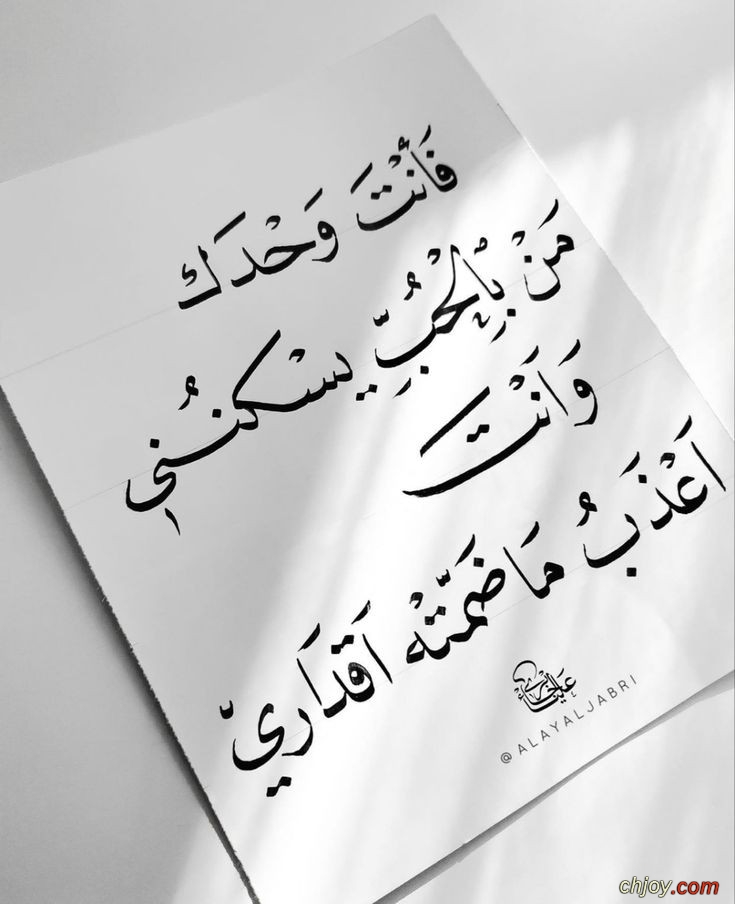 فَأَنْتَ وَحْدَكَ
مَنْ بِالْحُبِّ يَسْكُنُنِي
وَأَنْتَ
أَعْذَبُ مَا ضَمَّتْهُ أَقْدَارِيّ
علياء الجابري
@ALAYALJABRI
chjoy.com